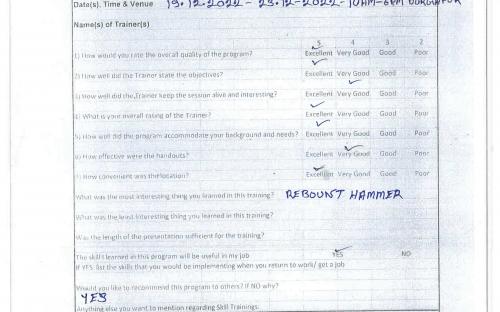 Date(s), Time & Venue 19.12.2022 - 23.12.2022 - 10AM-6PM DURGAPUR
Name(s) of Trainer(s)
5 4 3 2
1) How would you rate the overall quality of the program? Excellent Very Good Good Poor
2) How well did the Trainer state the objectives? Excellent Very Good Good Poor
3) How well did the Trainer keep the session alive and interesting? Excellent Very Good Good Poor
4) What is your overall rating of the Trainer? Excellent Very Good Good Poor
5) How well did the program accommodate your background and needs? Excellent Very Good Good Poor
6) How effective were the handouts? Excellent Very Good Good Poor
7) How convenient was the location? Excellent Very Good Good Poor
What was the most interesting thing you learned in this training? REBOUNT HAMMER
What was the least interesting thing you learned in this training?
Was the length of the presentation sufficient for the training?
The skills learned in this program will be useful in my job YES NO
If YES: list the skills that you would be implementing when you return to work/ get a job
Would you like to recommend this program to others? If NO why?
YES
Anything else you want to mention regarding Skill Trainings: